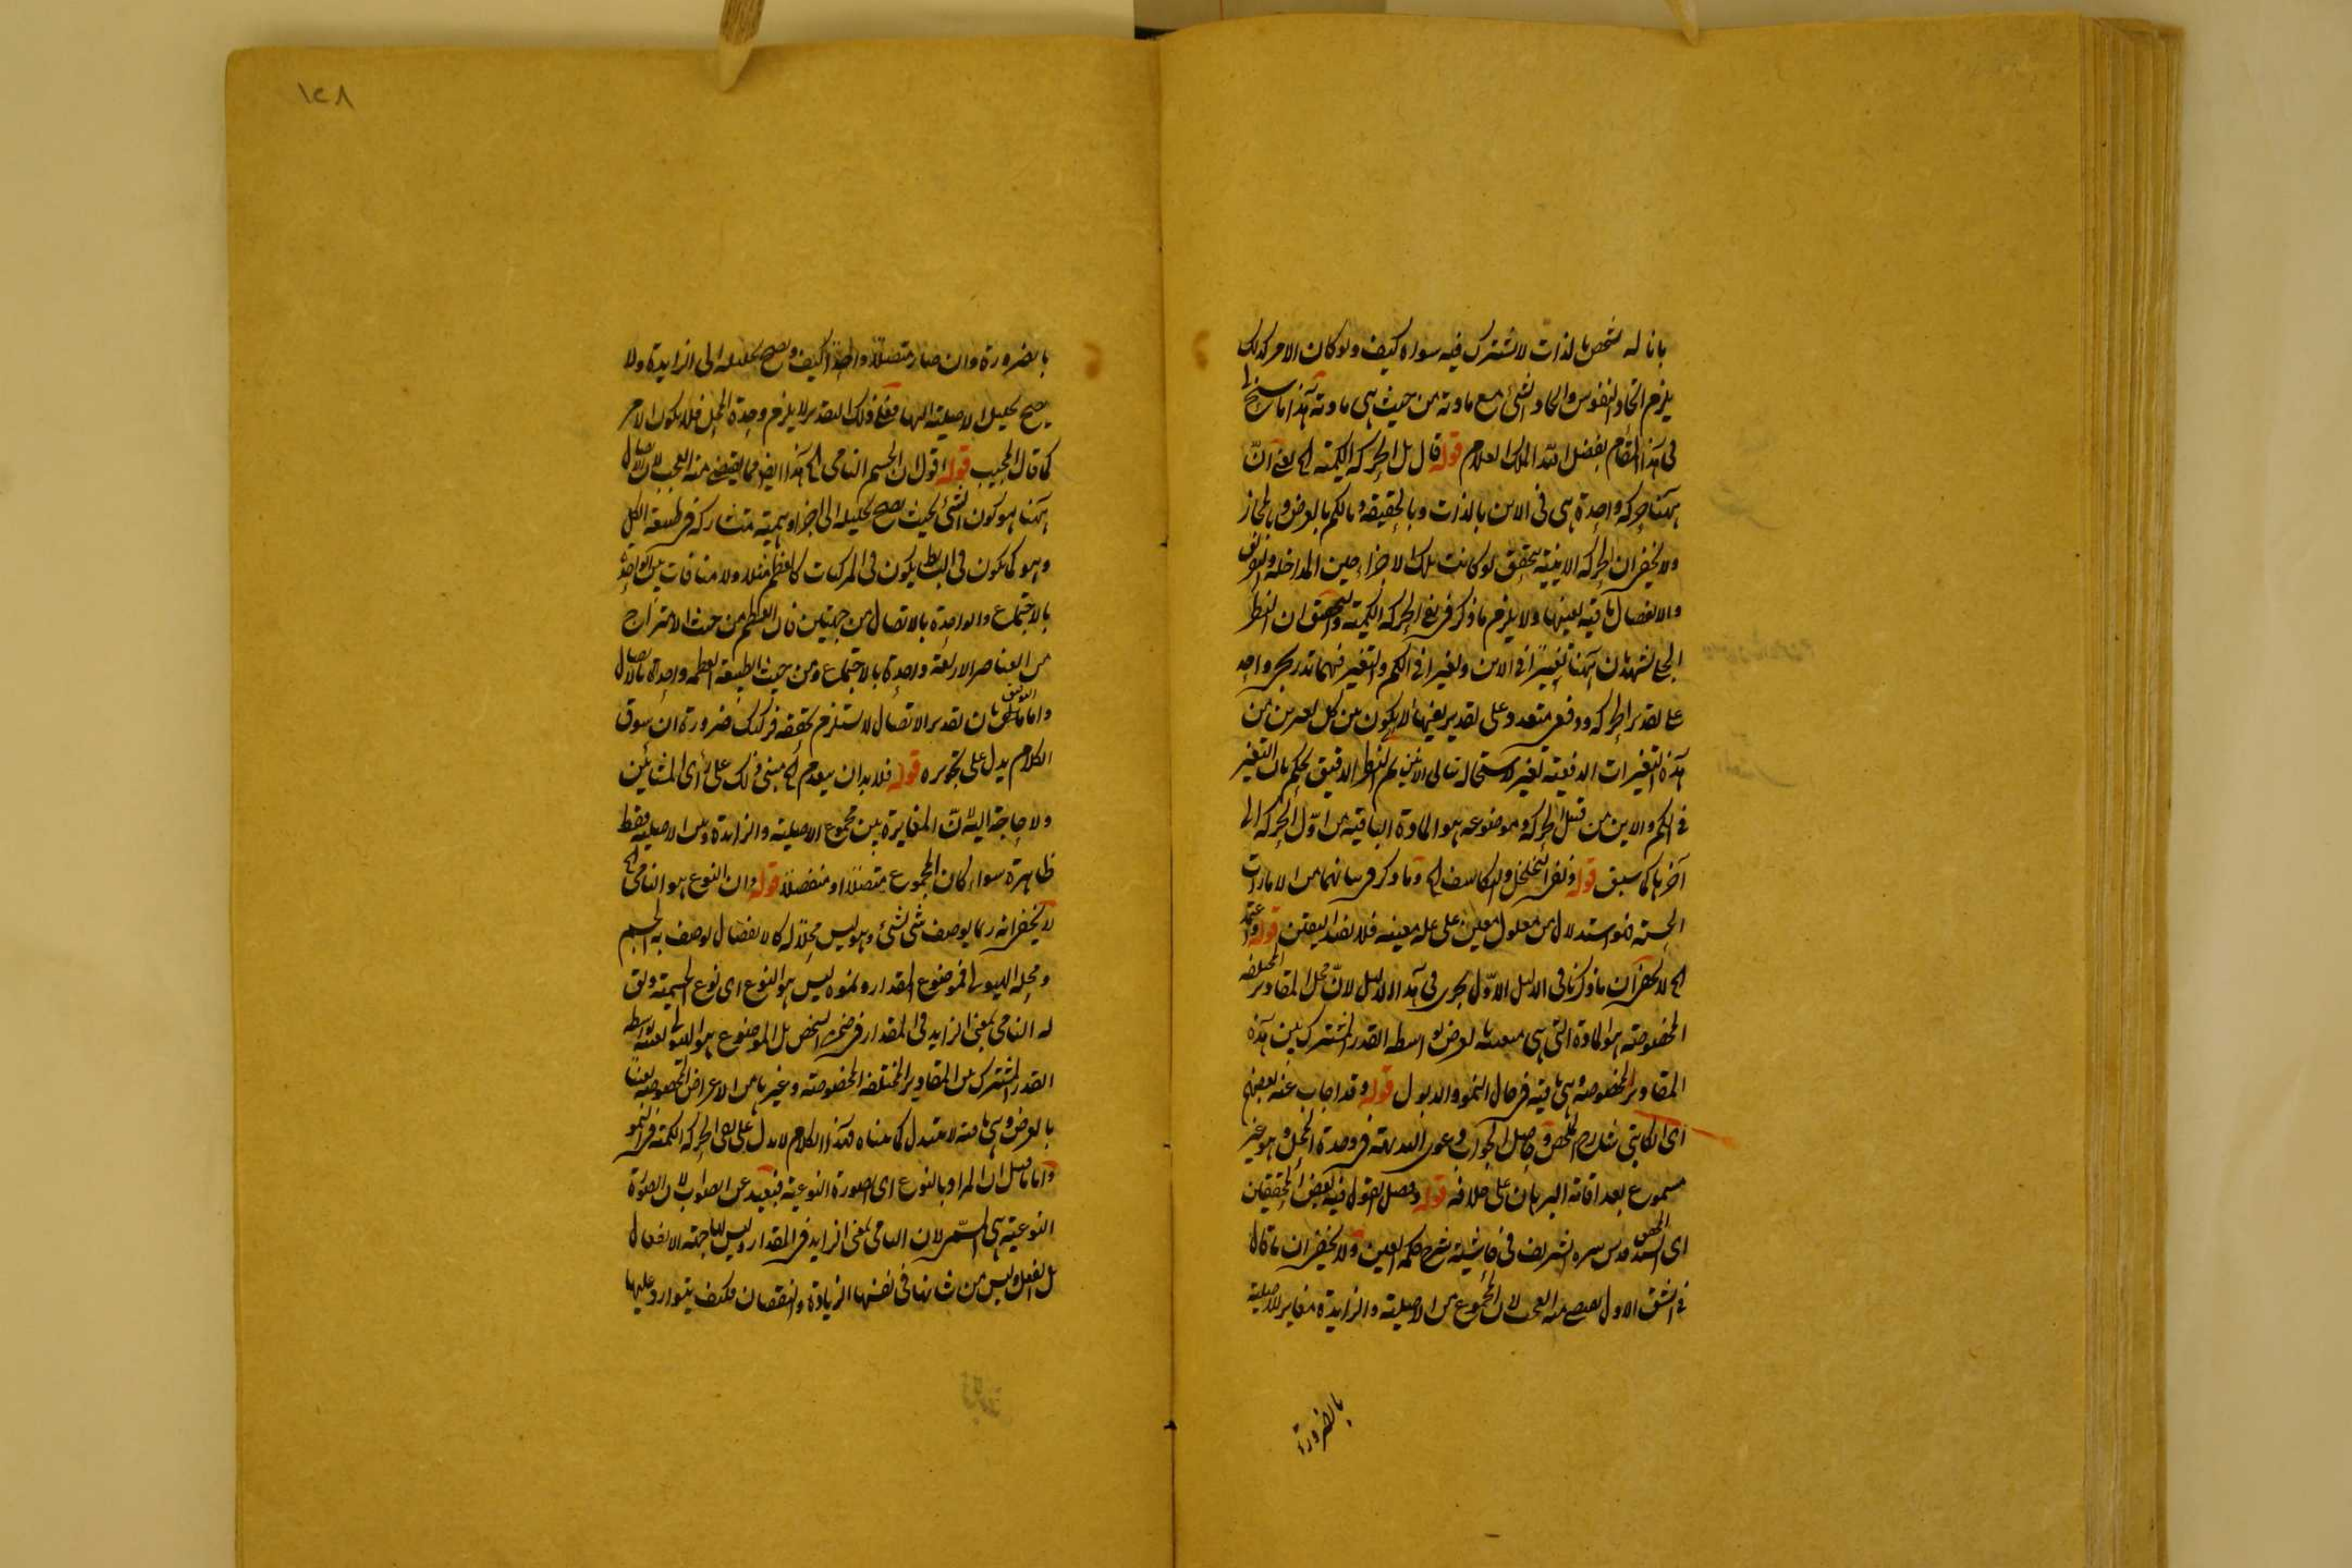 باناله شخص بالذات لا يشترك فيه سواه كيف ولو كان الامر كذلك
يلزم اتحاد النفوس واتحاد الشئ مع مادته من حيث هى مادته هذا ما سنح لى
فى هذا المقام بفضل الله الملك العلام قوله قال بل الحركة الكمية الخ يعنى انّ
ههنا حركة واحدة هى فى الاين بالذات وبالحقيقة وبالكم بالعرض وبالمجاز
ولا يخفى ان الحركة الاينية يتحقق لو كانت تلك الاجزاء حين المداخلة والتفرق
والانفصال باقية بعينها ولا يلزم ما ذكر فى نفى الحركة الكمية والتحقيق ان النظر
الجلى يشهد بان ههنا تغيرا فى الاين وتغيرا فى الكم والتغير فيهما تدريجى واحد
على تقدير الحركة ودفعى متعدد وعلى تقدير نفيها لا يكون بين كل تغيرين من
هذه التغيرات الدفعية تغير لاستحالة تتالى الآنين ثم النظر الدقيق يحكم بان التغير
فى الكم والاين من قبيل الحركة وموضوعه هو المادة الباقية من اوّل الحركة الى
آخرها كما سبق قوله ونفى التخلخل والتكاثف الخ وما ذكر فى بيانهما من الامارات
الحسية فهو استدلال من معلول معين على علة معينة فلا يفيد اليقين قوله واعتمد
الخ لا يخفى ان ما ذكرنا فى الدليل الاوّل يجرى فى هذا الدليل لانّ محل المقادير المختلفة
المخصوصة هو المادة التى هى متعينة بالعرض بواسطة القدر المشترك بين هذه
المقادير المخصوصة وهى باقية فى حال النمو والذبول قوله وقد اجاب عنه بعضهم
اى الكاتبى شارح الملخص وحاصل الجواب دعوى البديهة فى وحدة المحل وهو غير
مسموع بعد اقامة البرهان على خلافه قوله وفصل القول فيه بعض المحققين
اى السيد المحقق قدس سره الشريف فى حاشية شرح حكمة العين ولا يخفى ان ما قال
فى الشق الاول يقضى منه العجب لان المجموع من الاصلية والزايدة مغاير للاصلية
بالضرورة
١٢٨
بالضرورة وان صار متصلاً واحداً كيف ويصح تحليله الى الزايدة ولا
يصح تحليل الاصلية اليها فعلى ذلك التقدير لا يلزم وحدة المحل فلا يكون الامر
كما قال المجيب قوله اقول ان الجسم النامى الخ هذا ايضا مما يقضى منه العجب لان الاتصال
ههنا هو كون الشئ بحيث يصح تحليله الى اجزاء وهمية متشاركة فى طبيعة الكل
وهو كما يكون فى البسايط يكون فى المركبات كالعظم مثلا ولا منافات بين الواحد
بالاجتماع والواحدة بالاتصال من جهتين فان العظم من حيث الامتزاج
من العناصر الاربعة واحدة بالاجتماع ومن حيث الطبيعة العظمية واحدة بالاتصال
واما ما قيل بان تقدير الاتصال لا يستلزم تحققه فركيك ضرورة ان سوق
الكلام يدل على تجويزه قوله فلا بد ان ينعدم الخ مبنى ذلك على رأى المشائين
ولا حاجة اليه لانّ المغايرة بين مجموع الاصلية والزايدة وبين الاصلية فقط
ظاهرة سواء كان المجموع متصلاً او منفصلاً قوله وان النوع هو النامى الخ
لا يخفى انه ربما يوصف شئ بشئ وهو ليس محلاً له كالانفصال يوصف به الجسم
ومحله الهيولى فموضوع المقدار ونموه ليس هو النوع اى نوع الجسمية
له النامى بمعنى الزايد فى المقدار فى ضمن الشخص بل الموضوع هو الهيولى المتعينة بواسطة
القدر المشترك بين المقادير المختلفة المخصوصة وغيرها من الاعراض المخصوصة تعينا
بالعرض وهى باقية لا يتبدل كما بيناه فهذا الكلام لا يدل على نفى الحركة الكمية فى النمو
واما ما قيل ان المراد بالنوع اى الصورة النوعية فبعيد عن الصواب لان الصورة
النوعية هى لان النامى بمعنى الزايد فى المقدار وليس لها جهة الانفعال
بل الفعل وليس من شانها فى نفسها الزيادة والنقصان فكيف يتوارد عليها